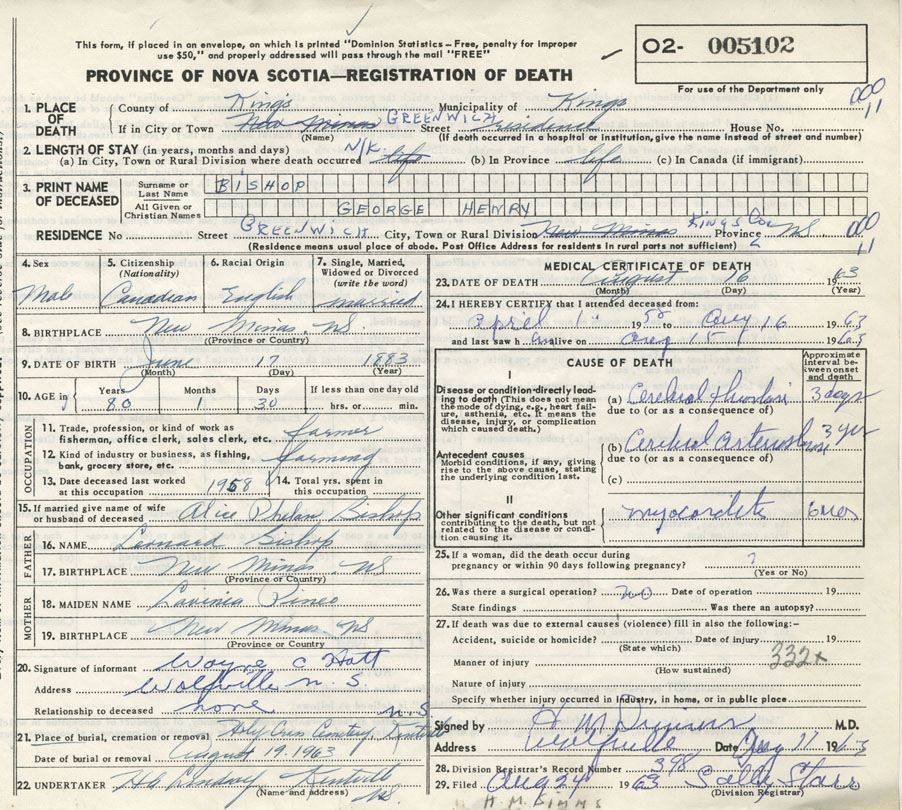 This form, if placed in an envelope, on which is printed "Dominion Statistics - Free, penalty for improper
use $50," and properly addressed will pass through the mail "FREE"
02- 005102
PROVINCE OF NOVA SCOTIA—REGISTRATION OF DEATH
For use of the Department only
1. PLACE OF DEATH
County of Kings Municipality of Kings 000
If in City or Town New Minas GREENWICH Street residence House No. 11
(Name) (If death occurred in a hospital or institution, give the name instead of street and number)
2. LENGTH OF STAY (in years, months and days)
(a) In City, Town or Rural Division where death occurred N/K life (b) In Province life (c) In Canada (if immigrant)
3. PRINT NAME OF DECEASED
Surname or Last Name BISHOP
All Given or Christian Names GEORGE HENRY
RESIDENCE No Street GREENWICH City, Town or Rural Division New Minas KINGS Co. Province NS 000
(Residence means usual place of abode. Post Office Address for residents in rural parts not sufficient) 11
4. Sex Male
5. Citizenship (Nationality) Canadian
6. Racial Origin English
7. Single, Married, Widowed or Divorced (write the word) married
8. BIRTHPLACE New Minas, NS
(Province or Country)
9. DATE OF BIRTH June 17 1883
(Month) (Day) (Year)
10. AGE in Years 80 Months 1 Days 30 If less than one day old hrs. or min.
OCCUPATION
11. Trade, profession, or kind of work as fisherman, office clerk, sales clerk, etc. farmer
12. Kind of industry or business, as fishing, bank, grocery store, etc. farming
13. Date deceased last worked at this occupation 1958
14. Total yrs. spent in this occupation
15. If married give name of wife or husband of deceased Alice Phelan Bishop
FATHER
16. NAME Leonard Bishop
17. BIRTHPLACE New Minas NS
(Province or Country)
MOTHER
18. MAIDEN NAME Lavinia Pineo
19. BIRTHPLACE New Minas, NS
(Province or Country)
20. Signature of informant Wayne C Hatt
Address Wolfville N. S.
Relationship to deceased none
21. Place of burial, cremation or removal Holy Cross Cemetery Kentville N.S.
Date of burial or removal August 19, 1963
22. UNDERTAKER Lindsay Kentville NS.
(Name and address)
MEDICAL CERTIFICATE OF DEATH
23. DATE OF DEATH August 16 1963
(Month) (Day) (Year)
24. I HEREBY CERTIFY that I attended deceased from:
April 1 19 to Aug 16 1963
and last saw h alive on Aug 15 1963
CAUSE OF DEATH
Approximate interval between onset and death
I
Disease or condition directly leading to death (This does not mean the mode of dying, e.g., heart failure, asthenia, etc. It means the disease, injury, or complication which caused death.)
(a) Cerebral thrombosis 3 days
due to (or as a consequence of)
Antecedent causes
Morbid conditions, if any, giving rise to the above cause, stating the underlying condition last.
(b) Cerebral 3 yrs
due to (or as a consequence of)
(c)
II
Other significant conditions contributing to the death, but not related to the disease or condition causing it.
myocarditis
25. If a woman, did the death occur during pregnancy or within 90 days following pregnancy? ?
(Yes or No)
26. Was there a surgical operation? no Date of operation 19
State findings Was there an autopsy?
27. If death was due to external causes (violence) fill in also the following:-
Accident, suicide or homicide? Date of injury 19
(State which)
332x
Manner of injury
(How sustained)
Nature of injury
Specify whether injury occurred in industry, in home, or in public place
Signed by M.D.
Address Wolfville Date Aug 17 1963
28. Division Registrar's Record Number 398
29. Filed Aug 24 1963 Starr
(Division Registrar)
H.M. BIMMS